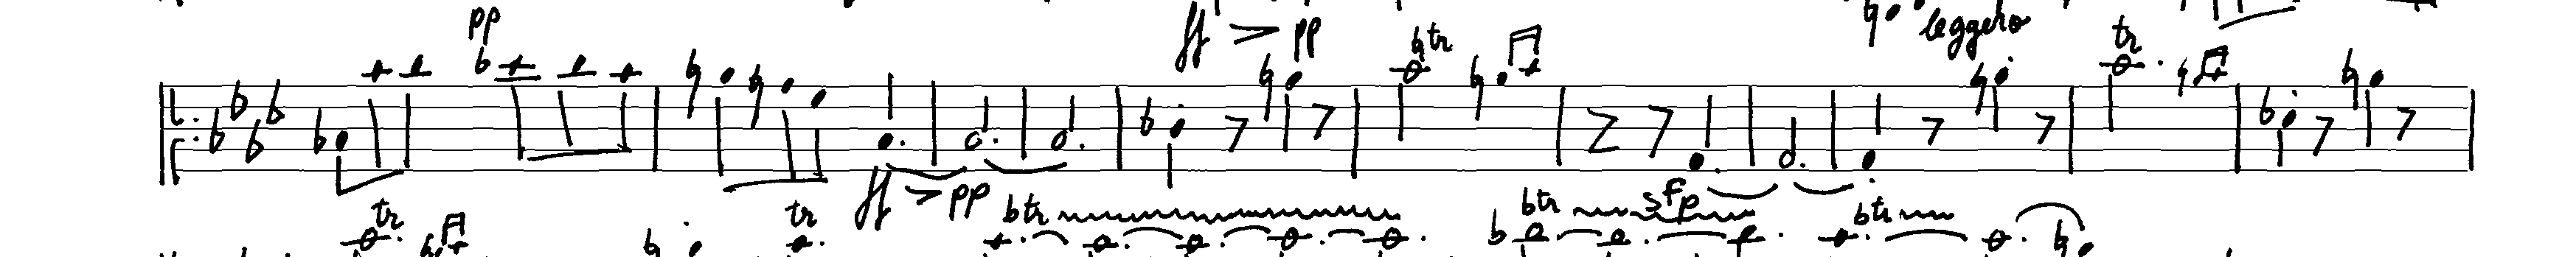 pp ff > pp tr leggero tr
ff > pp sfp
tr tr tr tr tr